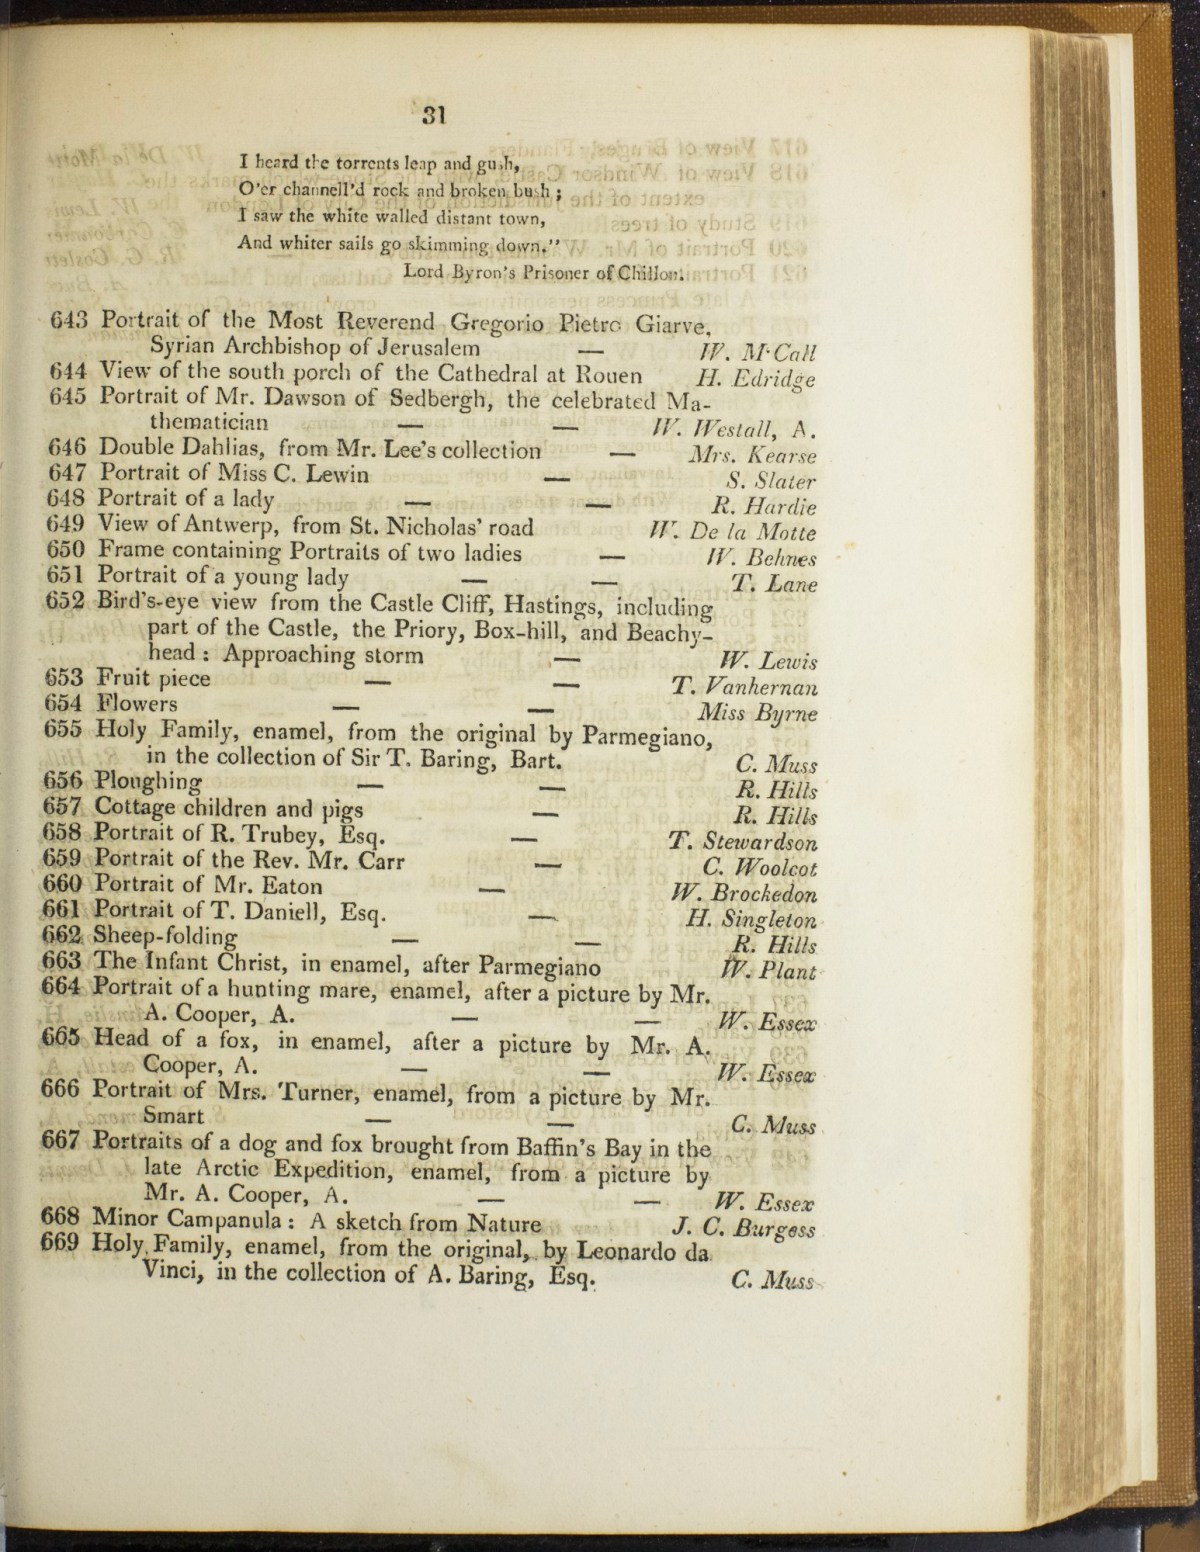 31
I heard the torrents leap and gush,
O'er channell'd rock and broken bush ;
I saw the white walled distant town,
And whiter sails go skimming down."
Lord Byron's Prisoner of Chillon.
643 Portrait of the Most Reverend Gregorio Pietro Giarve,
Syrian Archbishop of Jerusalem — W. M'Call
644 View of the south porch of the Cathedral at Rouen H. Edridge
645 Portrait of Mr. Dawson of Sedbergh, the celebrated Ma-
thematician — — W. Westall, A.
646 Double Dahlias, from Mr. Lee's collection — Mrs. Kearse
647 Portrait of Miss C. Lewin — S. Slater
648 Portrait of a lady — — R. Hardie
649 View of Antwerp, from St. Nicholas' road W. De la Motte
650 Frame containing Portraits of two ladies — W. Behnes
651 Portrait of a young lady — — T. Lane
652 Bird's-eye view from the Castle Cliff, Hastings, including
part of the Castle, the Priory, Box-hill, and Beachy-
head : Approaching storm — W. Lewis
653 Fruit piece — — T. Vanhernan
654 Flowers — — Miss Byrne
655 Holy Family, enamel, from the original by Parmegiano,
in the collection of Sir T. Baring, Bart. C. Muss
656 Ploughing — — R. Hills
657 Cottage children and pigs — R. Hills
658 Portrait of R. Trubey, Esq. — T. Stewardson
659 Portrait of the Rev. Mr. Carr — C. Woolcot
660 Portrait of Mr. Eaton — W. Brockedon
661 Portrait of T. Daniell, Esq. — H. Singleton
662 Sheep-folding — — R. Hills
663 The Infant Christ, in enamel, after Parmegiano W. Plant
664 Portrait of a hunting mare, enamel, after a picture by Mr.
A. Cooper, A. — — W. Essex
665 Head of a fox, in enamel, after a picture by Mr. A.
Cooper, A. — — W. Essex
666 Portrait of Mrs. Turner, enamel, from a picture by Mr.
Smart — — C. Muss
667 Portraits of a dog and fox brought from Baffin's Bay in the
late Arctic Expedition, enamel, from a picture by
Mr. A. Cooper, A. — — W. Essex
668 Minor Campanula : A sketch from Nature J. C. Burgess
669 Holy Family, enamel, from the original, by Leonardo da
Vinci, in the collection of A. Baring, Esq. C. Muss